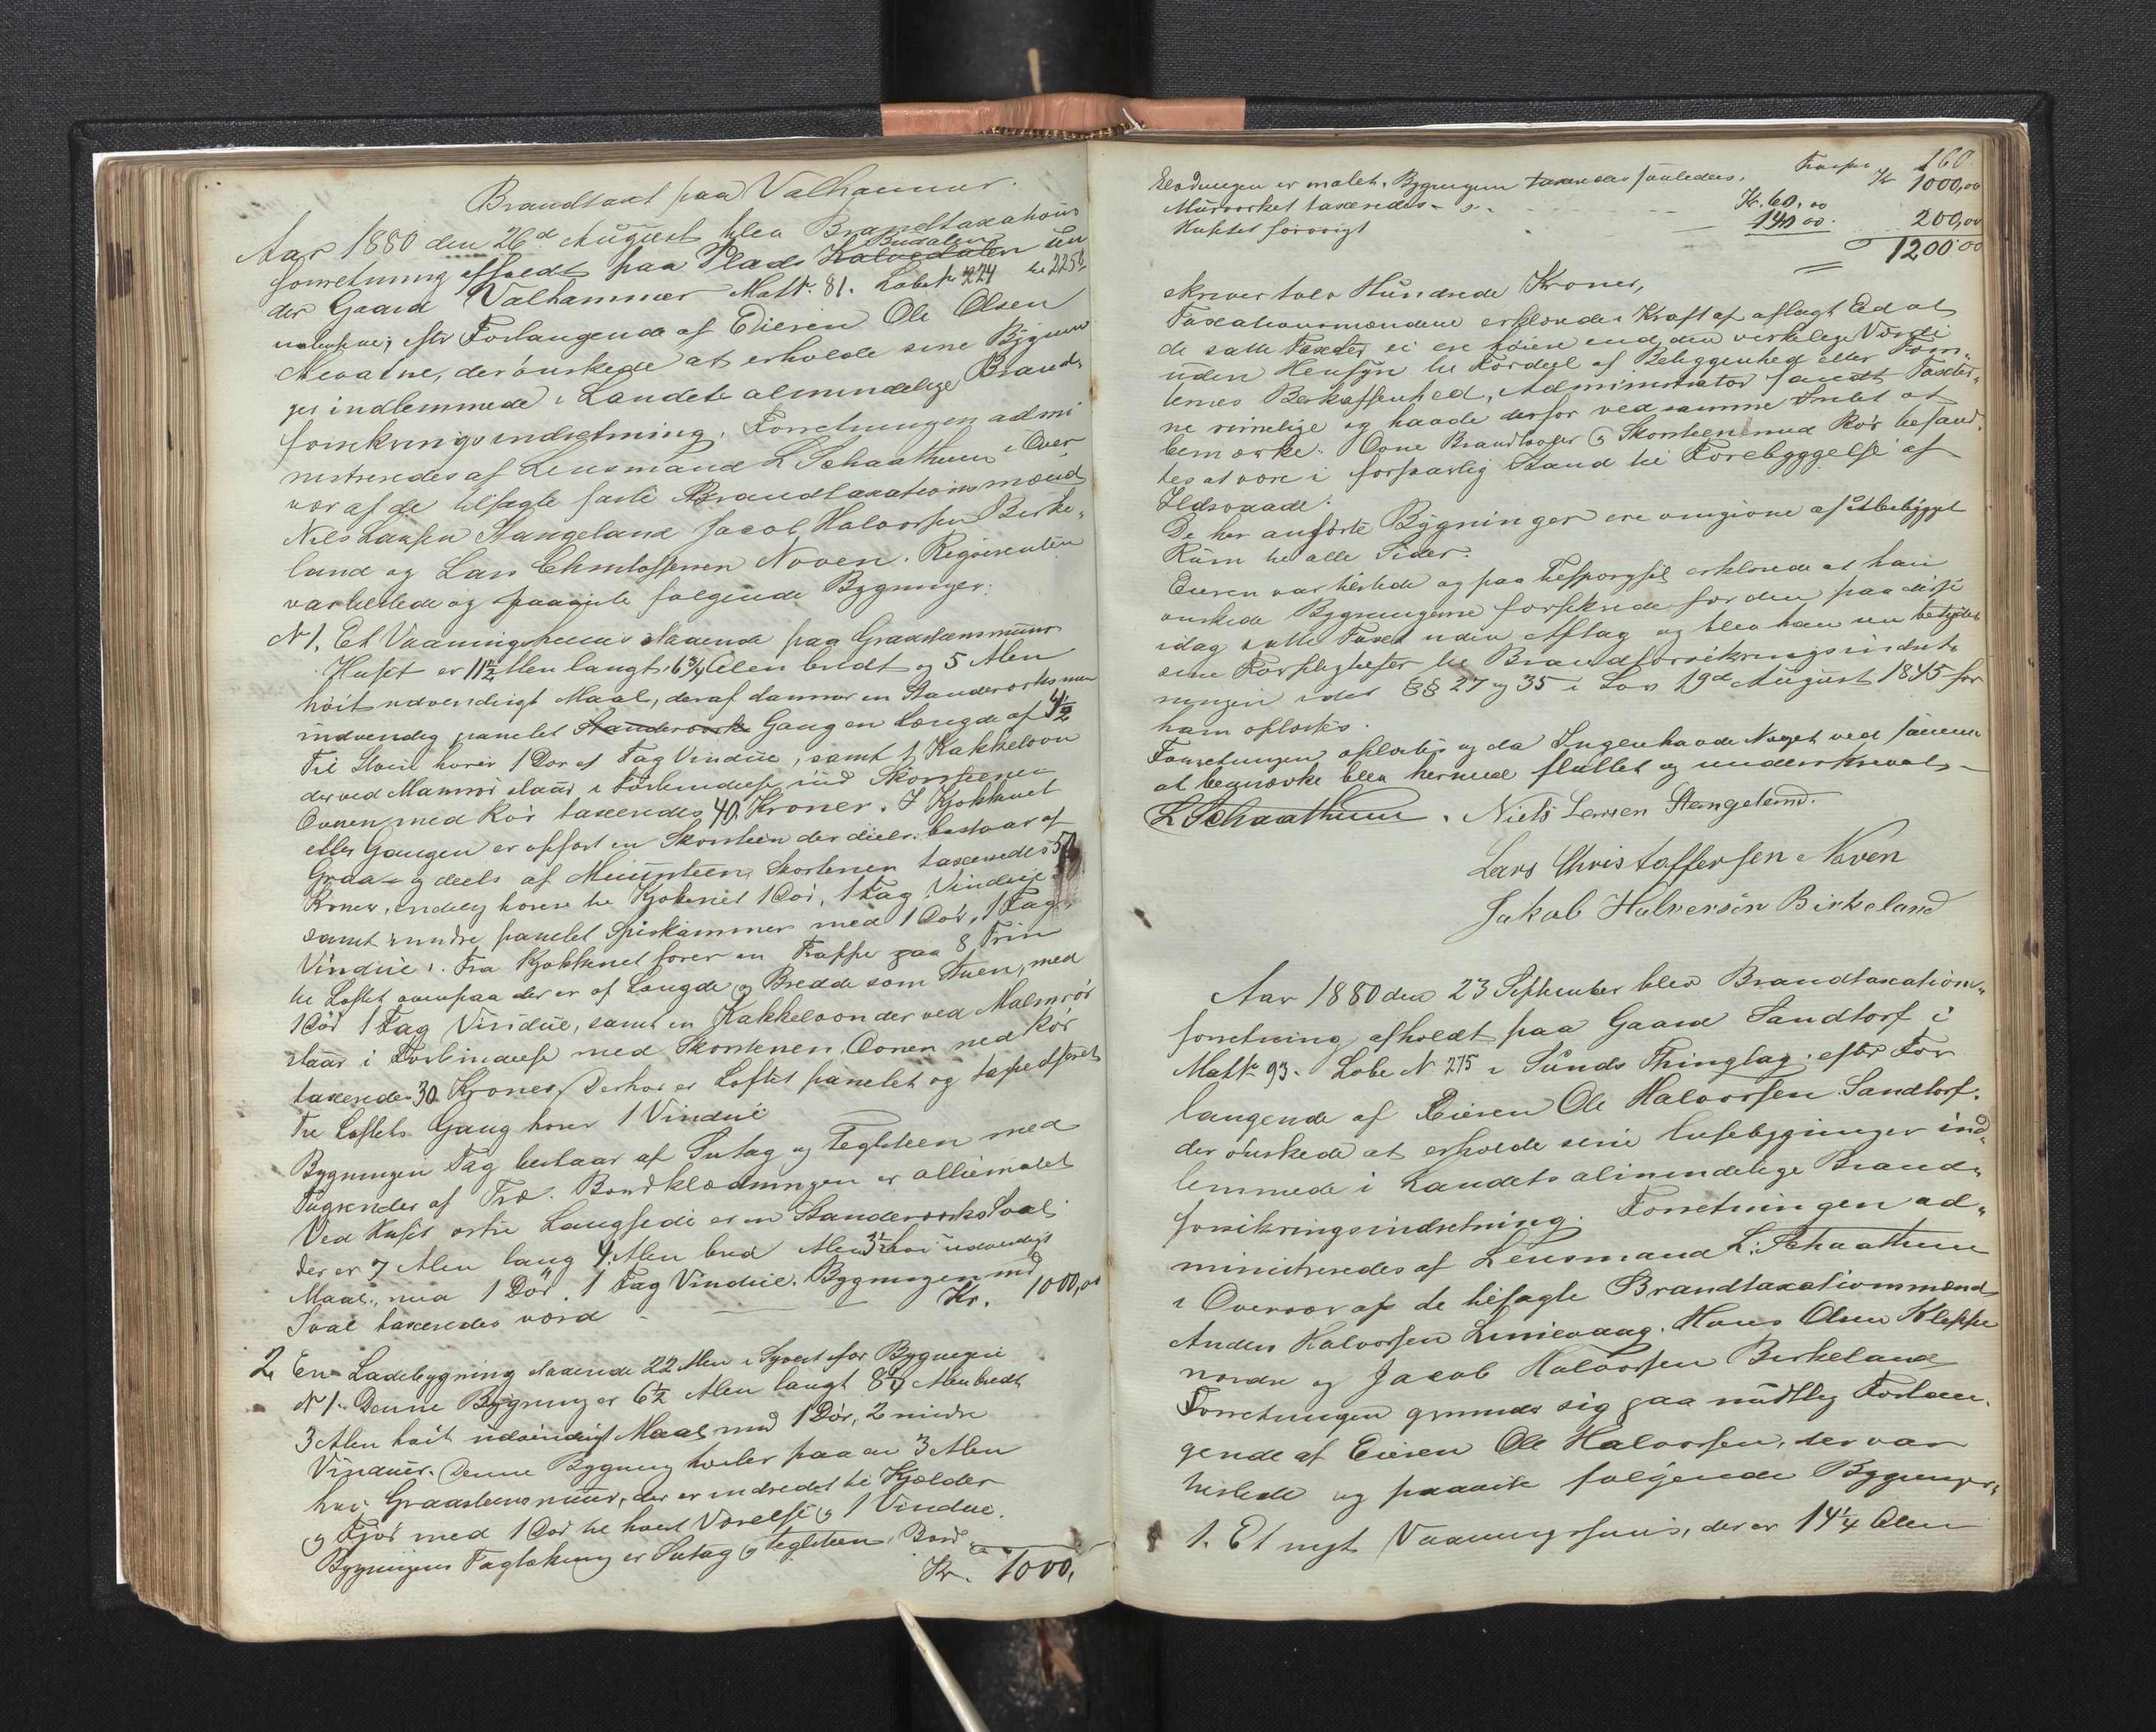 Brandtaxt paa Valhammer.
Aar 1880 den 26d August blev Brandtaxations
forretning afholdt paa Plads Kalvedalen un
Budalen
der Gaard Valhammer Matr. 81. Løbe No 224 til 225b
efter Forlangende af Eieren Ole Olsen
der ønskede at erholde sine Bygnin
ger indlemmede i Landets almindelige Brand,
forsikringsindretning. Forretningen admi
nistreredes af Lensmand L Schaathuun i Over
vær af de tilsagte faste Brandtaxationsmænd
Nils Larsen Stangeland Jacob Halvorsen Birke,
land og Lars Christoffersen Noven. Reqvirenten
var tilstede og paaviste følgende Bygninger:
No 1. Et Vaaningshuus staaende paa Graastensmuur
Huset er 11 1/2 Alen langt, 6 3/4 Alen bredt og 5 Alen
høit udvendigt Maal, deraf danner en Standerværks
indvendig panelet Standerværks Gang en Længde af 4 1/2
Til Stuen hører 1 Dør 2 Fag Vindue, samt 1 Kakkelovn
der ved Malmrør staar i Forbindelse med Skorstenen
Ovnen med Rør taxeredes 40 Kroner. I Kjøkkenet
eller Gangen er opført en Skorsten der deels bestaar af
Graa- og deels af Muursteen, Skorstenen taxeredes 50
Kroner, endelig hører til Kjøkenet 1 Dør, 1 Fag Vindue
samt mindre panelet Spiskammer med 1 Dør, 1 Fag
Vindue. Fra Kjøkkenet fører en Trappe paa 8 Trin
til Loftet ovenpaa der er af Længde og Bredde som Stuen, med
1 Dør 1 Fag Vindue, samt en Kakkelovn der ved Malmrør
staar i Forbindelse med Skorstenen. Ovnen med Rør
taxeredes 30 Kroner, Derhos er Loftet panelet og tapedseret
Til Loftets Gang hører 1 Vindue
Bygningen Tag bestaar af Sutag og Teglsteen med
Tagrender af Træ. Bordklædningen er olliemalet
Ved Husets østre Langside er en Standerværks Sval
der er 7 Alen lang 4 Alen bred Alen 3 1/2 høi udvendigt
Maal, med 1 Dør. 1 Fag Vindue. Bygningen med
Sval taxeredes værd - Kr. 1000,00
2. En Ladebygning staaende 22 Alen i Sydvest for Bygningen
No 1. Denne Bygning er 6 1/2 Alen langt 8 1/4 Alen bredt
3 Alen høit udvendigt Maal med 1 Dør, 2 mindre
Vinduer. Denne Bygning hviler paa en 3 Alen
høi Graasteensmuur, der er indredet til Kjælder
og Fjøs med 1 Dør til hvert Værelse og 1 Vindue.
Bygningens Tagtækning er Sutag og Teglsteen, Bord
Kr. 1000,
160.
Transp. Kr 1000,00
klædningen er malet. Bygningen taxeredes saaledes.
Muurværket taxeredes - Kr. 60,00
Huset forøvrigt 140 00. 200,00
1200 00
skriver tolv Hundrede Kroner,
Taxationsmændene erklærede i Kraft af aflagt Ed at
de satte Taxter ei ere høiere end den virkelige Værdi
uden Hensyn til Fordeel af Beliggenhed eller Tom,
ternes Beskaffenhed, Administrator fandt Taxter,
ne rimelige og havde derfor ved samme Intet at
bemærke. Ovne Brandbager og Skorstene med Rør befand,
tes at være i forsvarlig Stand til Forebyggelse af
Ildsvaade.
De her anførte Bygninger ere omgivne af ubebygget
Rum til alle Sider.
Eieren var tilstede og paa Tilspørgsel erklærede at han
ønskede Bygningerne forsikrede for den paa disse
idag satte Taxt uden Aftag og blev han nu betydet
sine Forpligtelser til Brandforsikringsindret,
ningen idet §§ 27 og 35 i Lov 19d August 1845 for
ham oplæstes.
Forretningen oplæstes og da Ingen havde Noget ved samme
at bemærke blev hermed sluttet og underskrevet -
L Schaathuun. Niels Larsen Stangeland.
Lars Christoffersen Noven
Jakob Halversen Birkeland
Aar 1880 den 23 September blev Brandtaxations,
forretning afholdt paa Gaard Sandtorf i
Matr. 93. Løbe No 275 i Sunds Thinglag. efter For
langende af Eieren Ole Halvorsen Sandtorf.
der ønskede at erholde sine husebygninger ind,
lemmede i Landets almindelige Brand,
forsikringsindretning. Forretningen ad,
ministreredes af Lensmand L. Schaathuun
i Overvær af de tilsagte Brandtaxationsmænd
Anders Halvorsen Hans Olsen Kleppe
nordre og Jacob Halvorsen Birkeland
Forretningen grunder sig paa mundtlig Forlan,
gende af Eieren Ole Halvorsen, der var
tilstede og paaviste følgende Bygninger,
1. Et nyt Vaaningshuus, der er 14 1/4 Alen